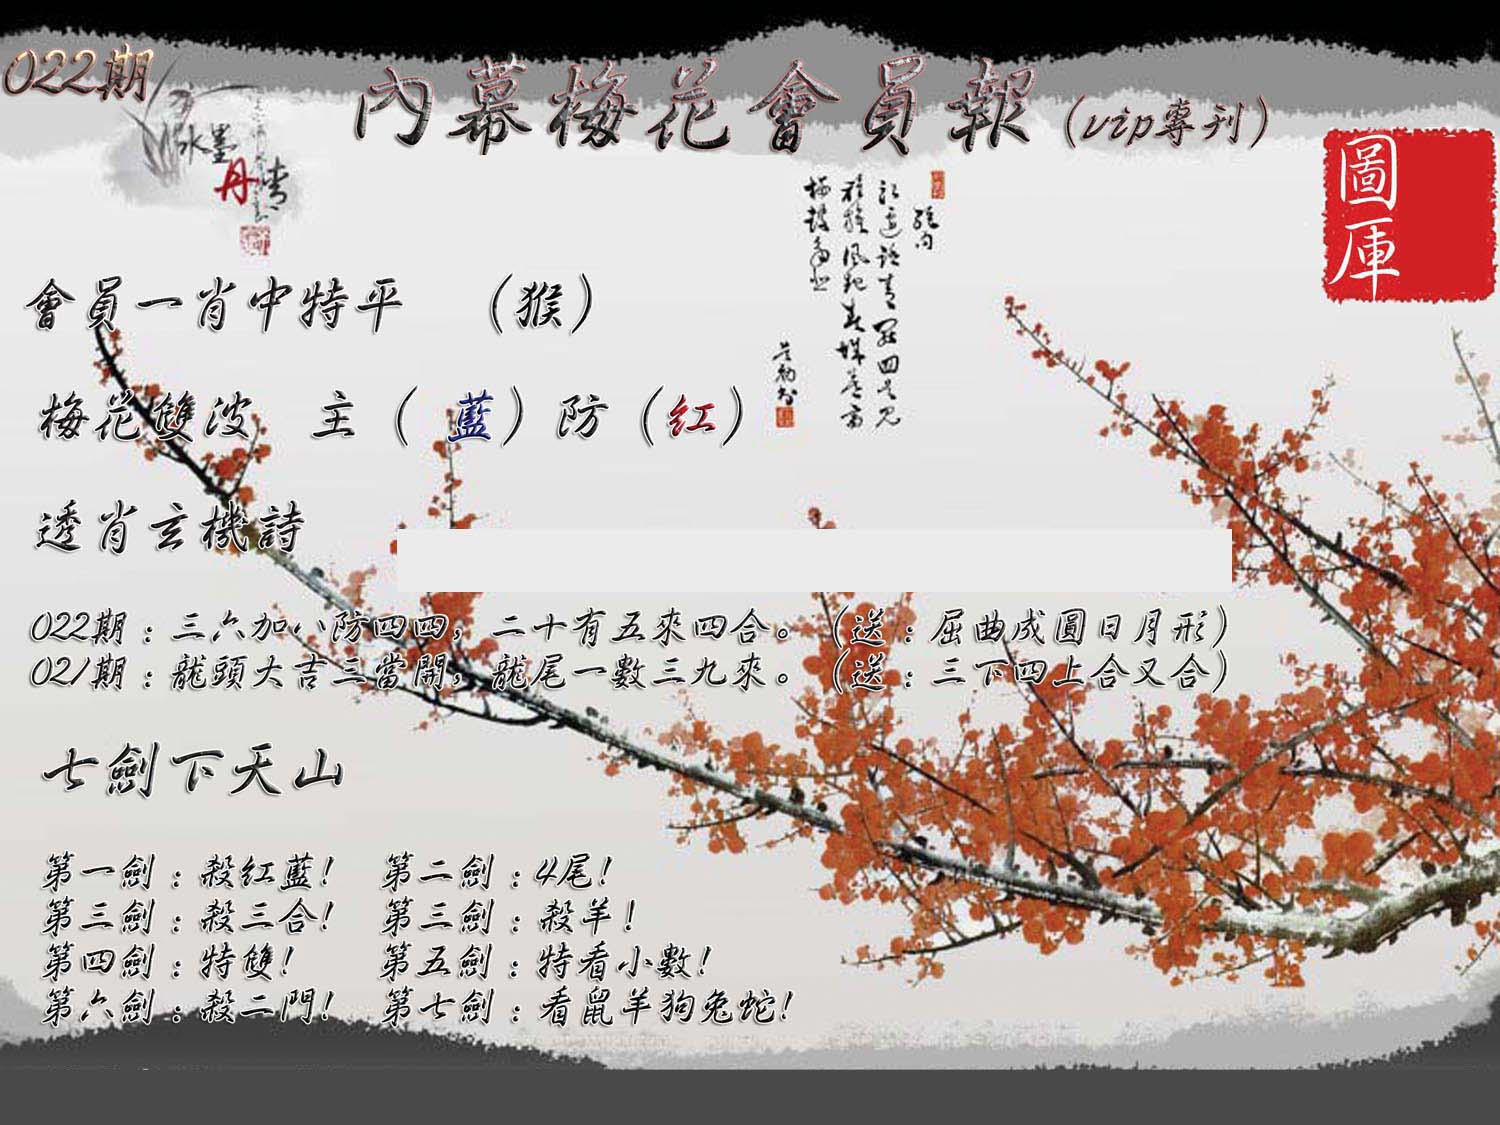 022期
內幕梅花會員報（vip專刊）
水墨
丹青
圖庫
會員一肖中特平 （猴）
梅花雙波 主（藍）防（紅）
透肖玄機詩
022期：三六加八防四四，二十有五來四合。（送：屈曲成圓日月形）
021期：龍頭大吉三當開，龍尾一數三九來。（送：三下四上合又合）
七劍下天山
第一劍：殺紅藍！ 第二劍：4尾！
第三劍：殺三合！ 第三劍：殺羊！
第四劍：特雙！ 第五劍：特看小數！
第六劍：殺二門！ 第七劍：看鼠羊狗兔蛇！